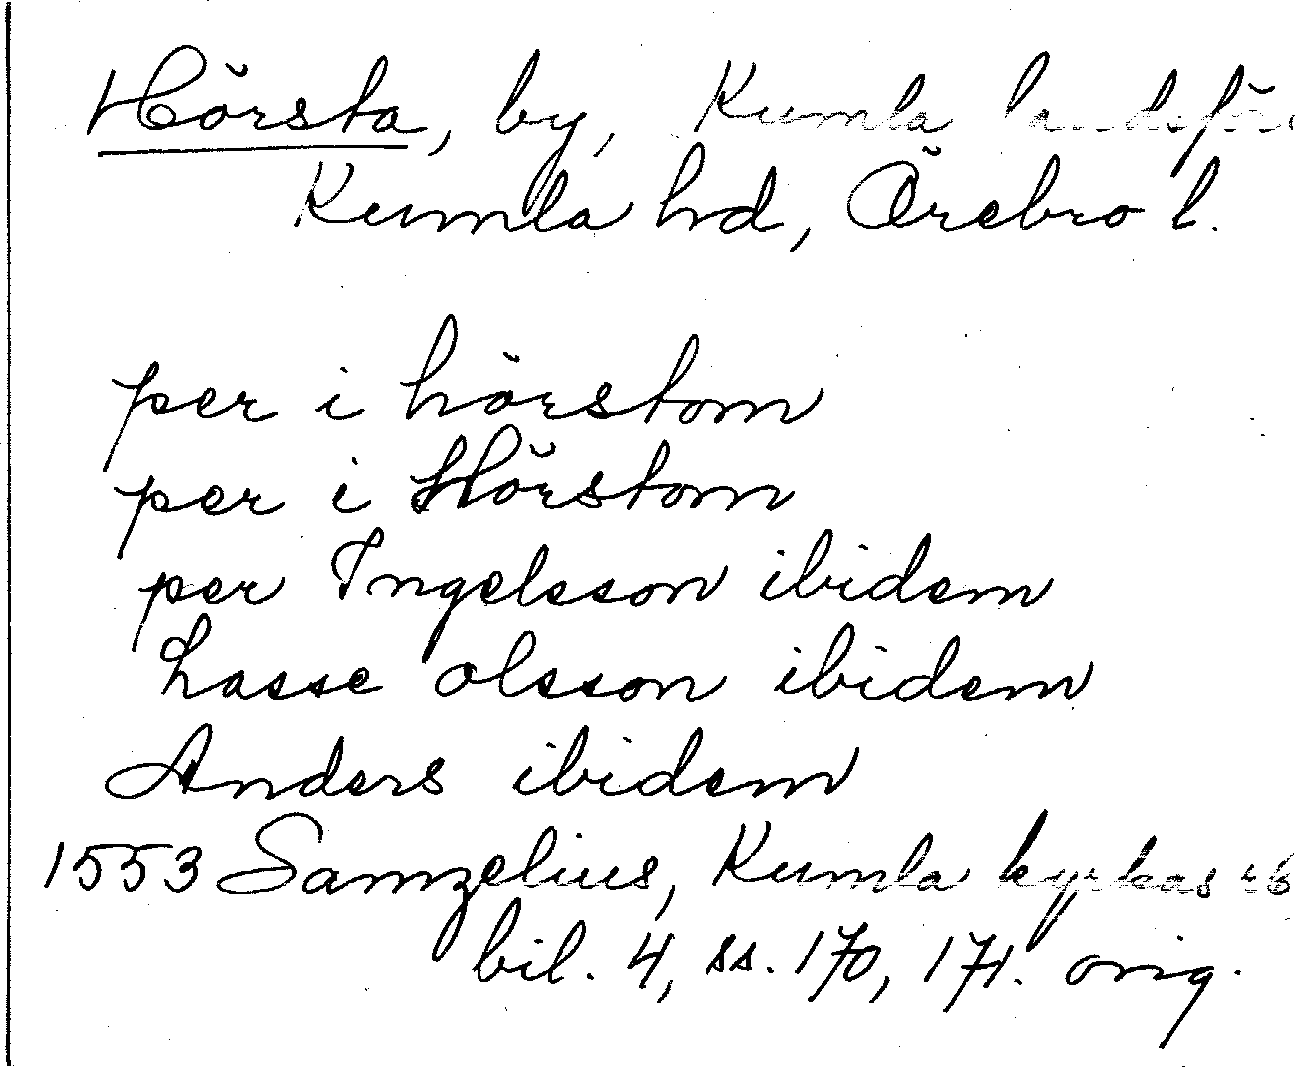 Hörsta, by, Kumla landsför
Kumla hd, Örebro l.
per i hörstom
per i Hörstom
per Ingelsson ibidem
Lasse olsson ibidem
Anders ibidem
1553 Samzelius, Kumla kyrkas rb
bil. 4, ss. 170, 171. orig.